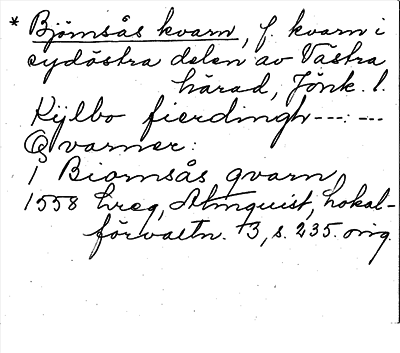 * Björnsås kvarn, f. kvarn i
sydöstra delen av Västra
härad, Jönk. l.
Kylbo fierdingh ---: ---
Qvarner:
1 Biornsås qvarn,
1558 Lreg, Almquist, Lokal-
förvaltn. 3, s. 235. orig.